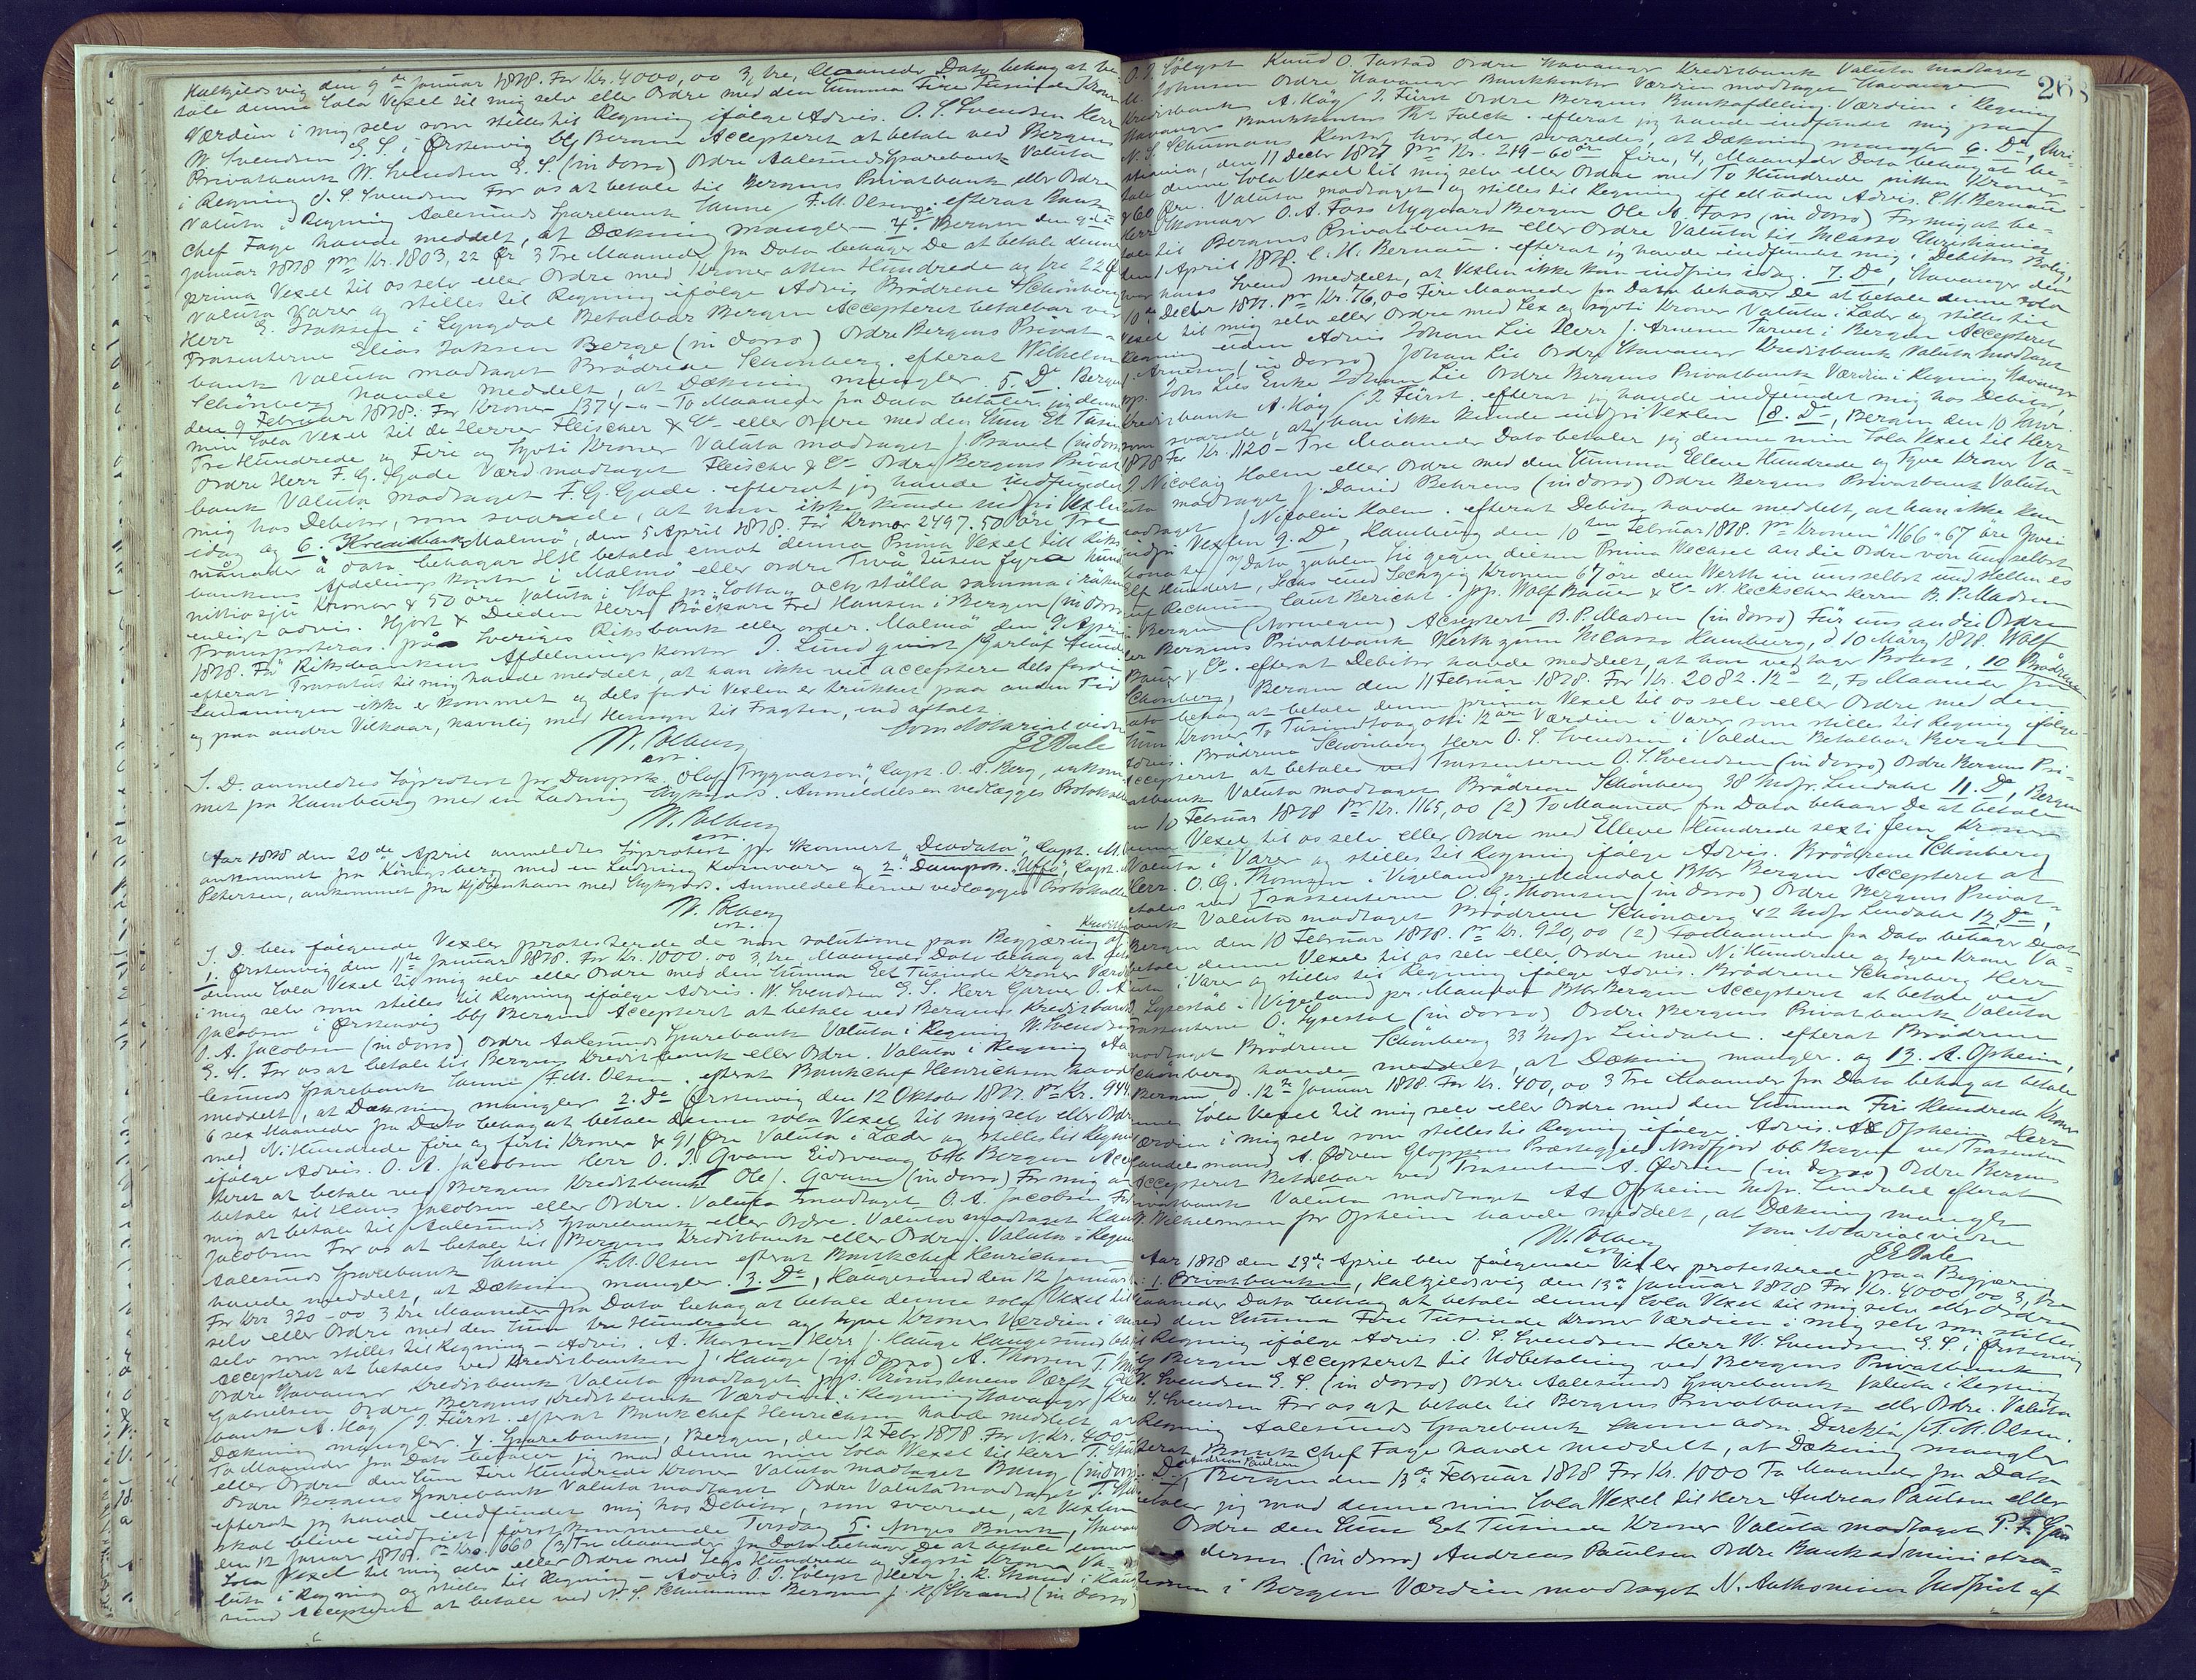 Kalkjildsvig den 9de Januar 1878. For Kr. 4000,00 3, tre, Maaneder Dato behag at be-
tale denne Sola Vexel til mig selv eller Ordre med den Summa Fire Tusinde Kroner
Værdien i mig selv som stilles til Regning ifølge Advis. O. S. Svendsen Herr
W. Svendsen E. S. i Ørstenvig bbf Bergen Accepteret at betale ved Bergens
Privatbank W. Svendsen E. S. (in dorso) Ordre Aalesunds Sparebank Valuta
i Regning O. S. Svendsen For os at betale til Bergens Privatbank eller Ordre
Valuta i Regning Aalesunds Sparebank Sanne / F. M. Olsen. efterat Bank
Chef Faye havde meddelt, at Dækning mangler. 4. Bergen den 9de
Januar 1878 pr Kr. 1803,22 Ør 3 Tre Maaneder fra Dato behager De at betale denne
prima Vexel til os selv eller Ordre med Kroner atten Hundrede og tre 22 Ø
Valuta Varer og stilles til Regning ifølge Advis Brødrene Schönberg
Herr E. Jaksen i Lyngdal Betalbar Bergen Accepteret betalbar ved
Trasenterne Elias Jaksen Berge (in dorso) Ordre Bergens Privat-
bank Valuta modtaget Brødrene Schönberg. efterat Wilhelm
Schönberg havde meddelt, at Dækning mangler. 5. Do Bergen
den 9 Februar 1878. For Kroner 1374 - " - To Maaneder fra Dato betaler jeg denne
min Sola Vexel til de Herrer Fleischer & Co eller Ordre med den Sum Et Tusin
Tre Hundrede og Fire og Syvti Kroner Valuta modtaget J. Bauel (in dorso
Ordre Herr F. G. Gade Værd modtaget Fleischer & Co Ordre Bergens Privat
bank Valuta modtaget F. G. Gade. efterat jeg havde indfundet
mig hos Debitor, som svarede, at han ikke kunde indfri Vexlen
idag og 6. Kreditbank Malmö, den 5 April 1878. För Kronor 2497.50 öre Tre
månader à dato behagar HH betala emot denna Prima Vexel till Riks
bankens Afdelningskontor i Malmö eller ordre Två tusen fyra hund
nittiosju Kronor & 50 öre Valuta i Staf pr "Lotta" och ställa samma i räkn
enligt advis. Hjort & Dieden Herr Bäckare Fred Hansen i Bergen (in dors
Transporteras på Sveriges Riksbank eller order. Malmö den 9 April
1878. Fö Riksbankens Afdelningskontor J. Lundquist / Garlöf Sunde
efterat Trasatus til mig havde meddelt, at han ikke vil acceptere dels fordi
Ladningen ikke er kommet og dels fordi Vexlen er trukket paa anden Tid
og paa andre Vilkaar, navnlig med Hensyn til Fragten, end aftalt.
W. Colberg Som Notarialvidne
 est. J E Dale
S. D. anmeldtes Søprotest pr Dampsk. "Olaf Trygvason", Capt. O. A. Berg, ankom-
met fra Hamburg med en Ladning Stykgods. Anmeldelsen vedlægges Protokollen
W. Colberg
est.
Aar 1878 den 20de April anmeldtes Søprotest for Skonnert "Deodata", Capt. M.
ankommet fra Königsberg med en Ladning Kornvarer og 2. Dampsk. "Uffo", Capt.
Petersen, ankommet fra Kjøbenhavn med Stykgods. Anmeldelserne vedlægges Protokollen
W. Colberg
est.
Kreditbk
S. D. blev følgende Vexler protesterede de non solutione paa Begjæring af
1. Ørstenvig den 11te Januar 1878. For Kr. 1000.00 3, tre, Maaneder Dato behag at bet
denne Sola Vexel til mig selv eller Ordre med den Summa Eet Tusinde Kroner Værd
i mig selv som stilles til Regning ifølge Advis. W. Svendsen E. S. Herr Garver O. A
Jacobsen i Ørstenvig bbf Bergen Accepteret at betale ved Bergens Kreditbank
O. A. Jacobsen (in dorso) Ordre Aalesunds Sparebank Valuta i Regning W. Svendsen
E. S. For os at betale til Bergens Kreditbank eller Ordre. Valuta i Regning Aa
lesunds Sparebank Sanne / F. M. Olsen. efterat Bankchef Henrichsen havde
meddelt, at Dækning mangler 2. Do Ørstenvig den 12 Oktober 1877. Pr Kr. 944
6 sex Maaneder fra Dato behag at betale denne sola Vexel til mig selv eller Ordr
med Ni Hundrede fire og firti Kroner & 91 Øre Valuta i Læder og stilles til Regning
ifølge Advis. O. A. Jacobsen Herr O. J. Qvam Eidsvaag btb Bergen Accep
teret at betale ved Bergens Kreditbank Ole J. Qvam (in dorso) For mig at
betale til Hans Jacobsen eller Ordre. Valuta modtaget O. A. Jacobsen For
mig at betale til Aalesunds Sparebank eller Ordre. Valuta modtaget Hans
Jacobsen For os at betale til Bergens Kreditbank eller Ordre. Valuta i Regn
Aalesunds Sparebank Sanne / F. M. Olsen efterat Bankchef Henrichsen
havde meddelt, at Dækning mangler. 3. Do, Haugesund den 12 Januar
For Kr 320-00 3 tre Maaneder fra Dato behag at betale denne sola Vexel til
selv eller Ordre med den Sum tre Hundrede og tyve Kroner Værdien i
selv som stilles til Regning - Advis. A. Thorsen Herr J. Hauge Haugesund
accepteret at betales ved Kreditbanken J. Hauge (in dorso) A. Thorsen
Ordre Stavanger Kreditbank Valuta modtaget pps.
Gabrielsen Ordre Bergens Kreditbank Værdien i Regning Stavanger Kre
bank A. Køy / J. Fürst. efterat Bankchef Henrichsen havde meddelt, at
Dækning mangler. 4. Sparebanken, Bergen, den 12 Febr 1878. For N.Kr. 400.-
To Maaneder fra Dato betaler jeg mod denne min Sola Wexel til Herr
eller Ordre den Sum Fire Hundrede Kroner Valuta modtaget Bang (in dorso
Ordre Bergens Sparebank Valuta modtaget Ordre Valuta modtaget
efterat jeg havde indfundet mig hos Debitor, som svarede, at Vexlen
skal blive indfriet førstkommende Tirsdag 5. Norges Bank,
den 12 Januar 1878. Pr Kr. 660 (3) Tre Maaneder fra Dato behager De at betale denne
Sola Vexel til mig selv eller Ordre med Sexs Hundrede og Segsti Kroner Va-
luta i Regning og stilles til Regning - Advis O. J. Sølyst Herr J. K. Strand i Hauge
sund Accepteret at betale ved N. S. Schumann Bergen J. K. Strand (in dorso)
268
O. J. Sølyst Knud O. Tastad Ordre Stavanger Kreditbank Valuta modtaget
M. Johnsen Ordre Stavanger Bankkontor Værdien modtaget Stavanger
Kreditbank A. Køy / J. Fürst Ordre Bergens Bankafdeling. Værdien i Regning
Stavanger Bankkontor Falck. efterat jeg havde indfundet mig paa
N. S. Schumans Kontor, hvor der svaredes, at Dækning mangler 6. Do, Chri-
stiania, den 11 Decbr 1877 pr Kr. 219-60 øre fire, 4, Maaneder Dato behag at be-
tale denne Sola Vexel til mig selv eller Ordre med To Hundrede nitten Kroner
& 60 Øre. Valuta modtaget og stilles til Regning ifl ell uden Advis. C. H. Bernau
Herr Skomager O. A. Foss Nygaard Bergen Ole A. Foss (in dorso) For mig at be-
tale til Bergens Privatbank eller Ordre Valuta til Incasso Christiania
den 1 April 1878. C. H. Bernau. efterat jeg havde indfundet mig i Debitors Bolig,
hvor hans Svend meddelte, at Vexlen ikke kan indfries idag. 7. Do, Stavanger den
10de Decbr 1877. pr Kr. 76,00 Fire Maaneder fra Dato behager De at betale denne sola
Vexel til mig selv eller Ordre med Sex og Sypti Kroner Valuta i Læder og stilles til
Regning uden Advis Johan Lie Herr J. Arnesen Torvet i Bergen Accepteret
J. Arnesen (in dorso) Johan Lie Ordre Stavanger Kreditbank Valuta modtaget
pp. Johs Lies Enke Johan Lie Ordre Bergens Privatbank Værdien i Regning Stavanger
Kreditbank A. Køy / J. Fürst. efterat jeg havde indfundet mig hos Debitor,
som svarede, at han ikke kunde indfri Vexlen (8. Do, Bergen den 10 Janr.
1878 For Kr. 1120 - Tre Maaneder Dato betaler jeg denne min Sola Vexel til Herr
J. Nicolaij Holm eller Ordre med den Summa Elleve Hundrede og Tyve Kroner Va-
luta modtaget J. David Behrens (in dorso) Ordre Bergens Privatbank Valuta
modtaget J Nicolai Holm. efterat Debitor havde meddelt, at han ikke kan
indfri Vexlen 9. Do, Hamburg den 10ten Februar 1878. pr Kronen 1166"67 öre Zwei
Monate n/Dato zahlen Sie gegen diesen Prima Wechsel an die Ordre von uns selbst
Elf Hundert, Sechs und Sechzig Kronen 67 öre den Werth in uns selbst und stellen es
auf Rechnung laut Bericht. pp. Wolf Bauer & Co N. Heckscher Herrn B. P. Madsen
Bergen (Norwegen) Acceptert B. P. Madsen (in dorso) Für uns an die Ordre
der Bergens Privatbank Werth zum Incasso Hamburg, d 10 März 1878. Wolf
Bauer & Co. efterat Debitor havde meddelt, at han vedtager Protest 10 Brødrene
Schönberg, Bergen den 11 Februar 1878. For Kr. 2082.12 Ø 2, To Maaneder fra
Dato behag at betale denne prima Vexel til os selv eller Ordre med den
Sum Kroner To Tusind toogotti 12 øre Værdien i Varer som stilles til Regning ifølge
Advis. Brødrene Schönberg Herr O. S. Svendsen i Volden Betalbar Bergen
Accepteret at betales ved Trassenterne O. S. Svendsen (in dorso) Ordre Bergens Pri-
vatbank Valuta modtaget Brødrene Schönberg 38 Indfr. Lindahl 11. Do, Bergen
den 10 Februar 1878 Pr Kr. 1165,00 (2) To Maaneder fra Dato behager De at betale
denne Vexel til os selv eller Ordre med Elleve Hundrede sexti fem Kroner
Valuta i Varer og stilles til Regning ifølge Advis. Brødrene Schönberg
Herr. O. G. Thomsen i Vigeland pr. Mandal Btbr Bergen Accepteret at
betales ved Trassenterne O. G. Thomsen (in dorso) Ordre Bergens Privat-
bank Valuta modtaget Brødrene Schönberg 42 Indfr Lindahl 12, Do,
Bergen den 10 Februar 1878. pr Kr. 920,00 (2) To Maaneder fra Dato behager De at
betale denne Vexel til os selv eller Ordre med Ni Hundrede og tyve Krone Va-
luta i Varer og stilles til Regning ifølge Advis. Brødrene Schönberg Herr
O. Lysestøl i Vigeland pr. Mandal Btbr Bergen Accepteret at betale ved
Trassenterne O. Lysestøl (in dorso) Ordre Bergens Privatbank Valuta
modtaget Brødrene Schönberg 33 Indfr Lindahl. efterat Brødrene
Schönberg havde meddelt, at Dækning mangler. og 13. A. Opheim,
Bergen, d. 12te Januar 1878. For Kr. 400,00 3 Tre Maaneder fra Dato behag at betale
denne Sola Vexel til mig selv eller Ordre med den Summa Fir Hundrede Kroner
Værdien i mig selv som stilles til Regning ifølge Advis. A Opheim Herr
Landelsmand A. Ødven Gloppens Præstegjeld Nordfjord bb Bergen ved Trasenten
Accepteret Betalbar ved Trasenten A. Ødven (in dorso) Ordre Bergens
Privatbank Valuta modtaget A Opheim Indfr. Lindahl efterat
W. Wilhelmsen for Opheim havde meddelt, at Dækning mangler
W. Colberg Som Notarialvidne
est J E Dale
Aar 1878 den 23de April blev følgende Vexler protesterede paa Begjæring
af: 1. Privatbanken, Kalkjildsvig den 13de Januar 1878 For Kr. 4000,00 3, tre
Maaneder Dato behag at betale denne Sola Vexel til mig selv eller Ordre
med den Summa Fire Tusinde Kroner Værdien i mig selv som stilles
til Regning ifølge Advis. O. S. Svendsen Herr W. Svendsen E. S. i Ørstenvig
bbf Bergen Accepteret til Udbetaling ved Bergens Privatbank
W. Svendsen E. S. (in dorso) Ordre Aalesunds Sparebank Valuta i Regning
O. S. Svendsen For os at betale til Bergens Privatbank eller Ordre. Valuta
i Regning Aalesunds Sparebank Sanne adm. Direktør / F. M. Olsen.
efterat Bank Chef Faye havde meddelt, at Dækning mangler
Andreas Paulsen
2. Do, Bergen den 13de Februar 1878 For Kr. 1000 To Maaneder fra Dato
betaler jeg mod denne min Sola Wexel til Herr Andreas Paulsen eller
Ordre den Sum Eet Tusinde Kroner Valuta modtaget P. F. Gun
dersen (in dorso) Andreas Paulsen Ordre Bankadministra-
tionen i Bergen Værdien modtaget N. Anthonisen Indfriet af